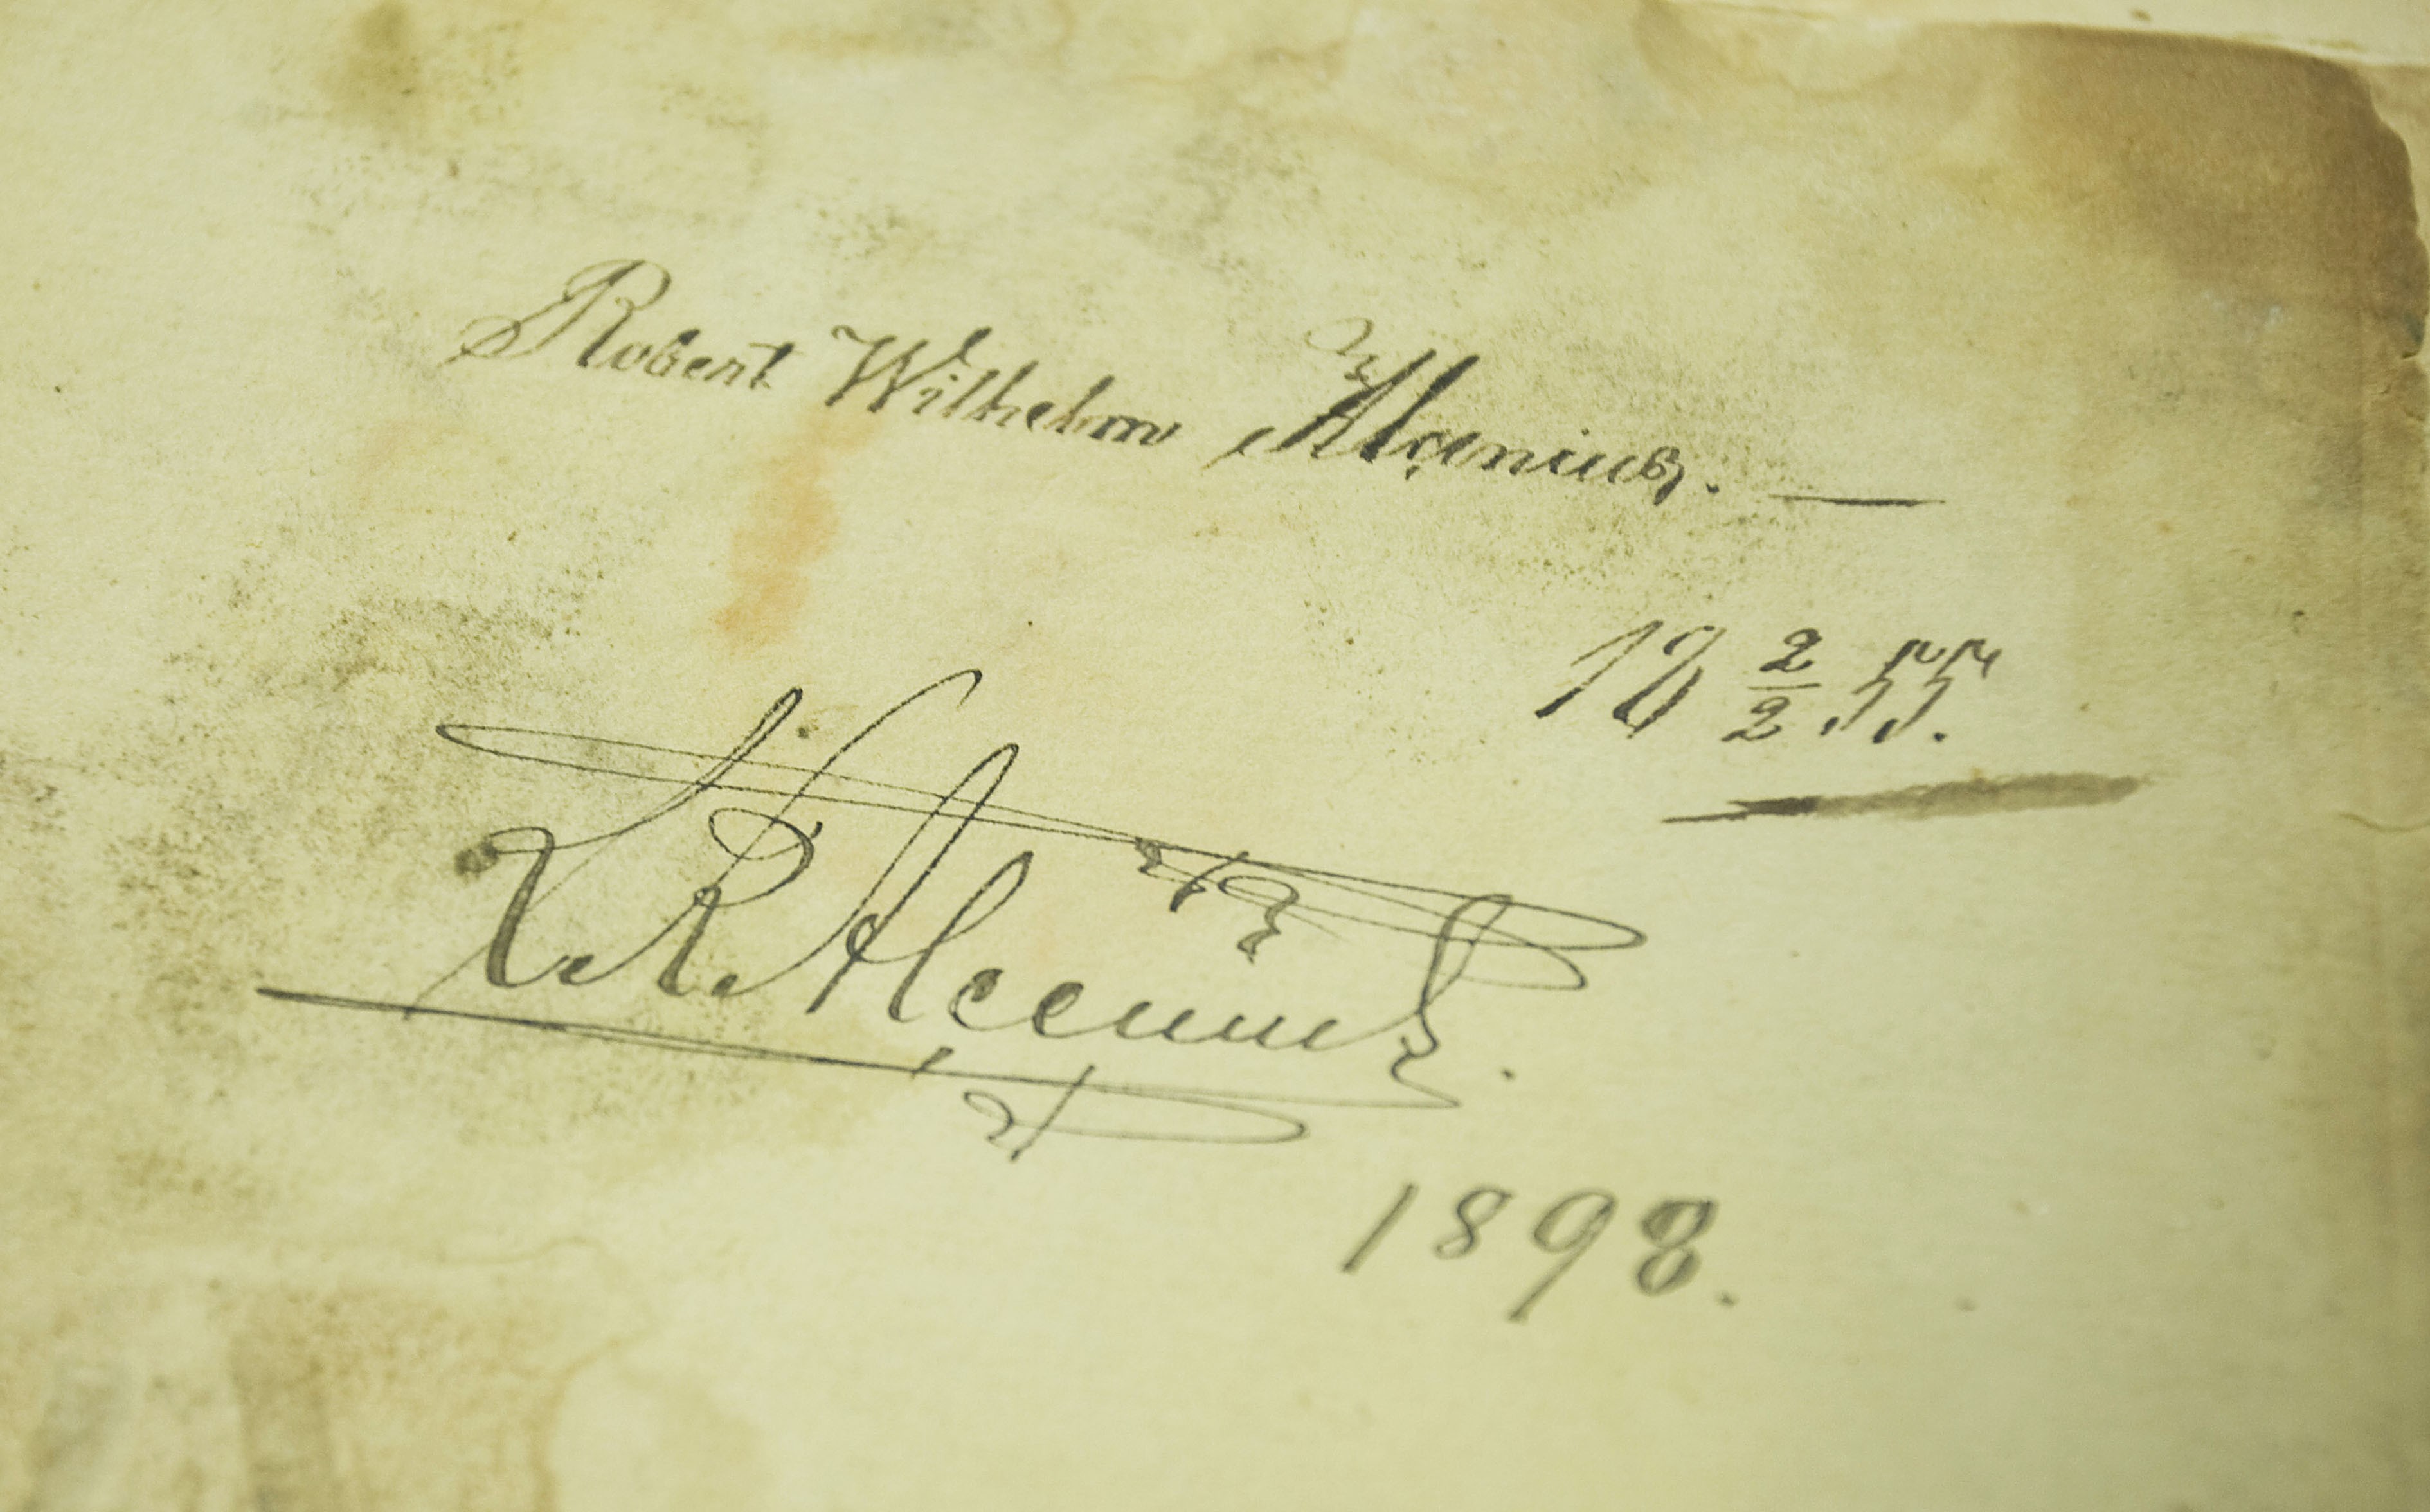 Robert Wilhelm Alcenius. —
18 2/2 55.
L. R. Alcenius.
1898.